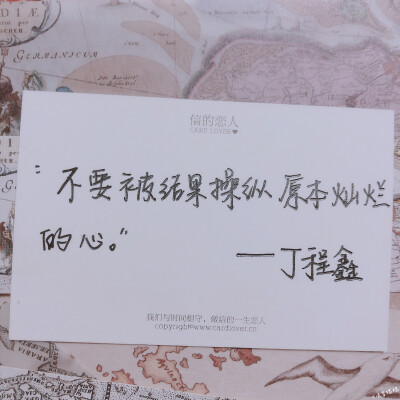 GERMANICUM
信的恋人
CARD LOVER♥
“不要被结果操纵原本灿烂
的心。”
——丁程鑫
我们与时间相守，做信的一生恋人
copyright©www.cardlover.cn